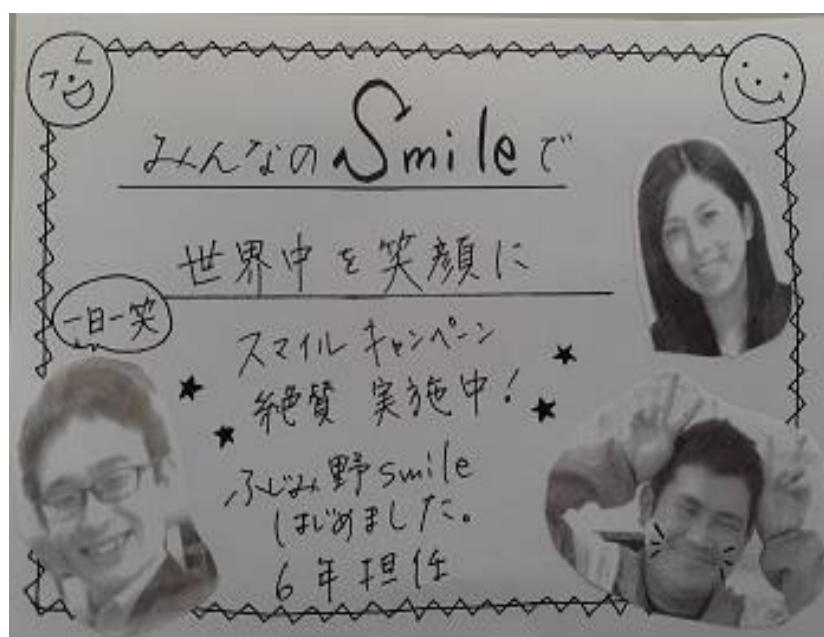 みんなのSmileで
世界中を笑顔に
一日一笑
スマイルキャンペーン
絶賛 実施中!
ふじみ野smile
はじめました。
6年担任